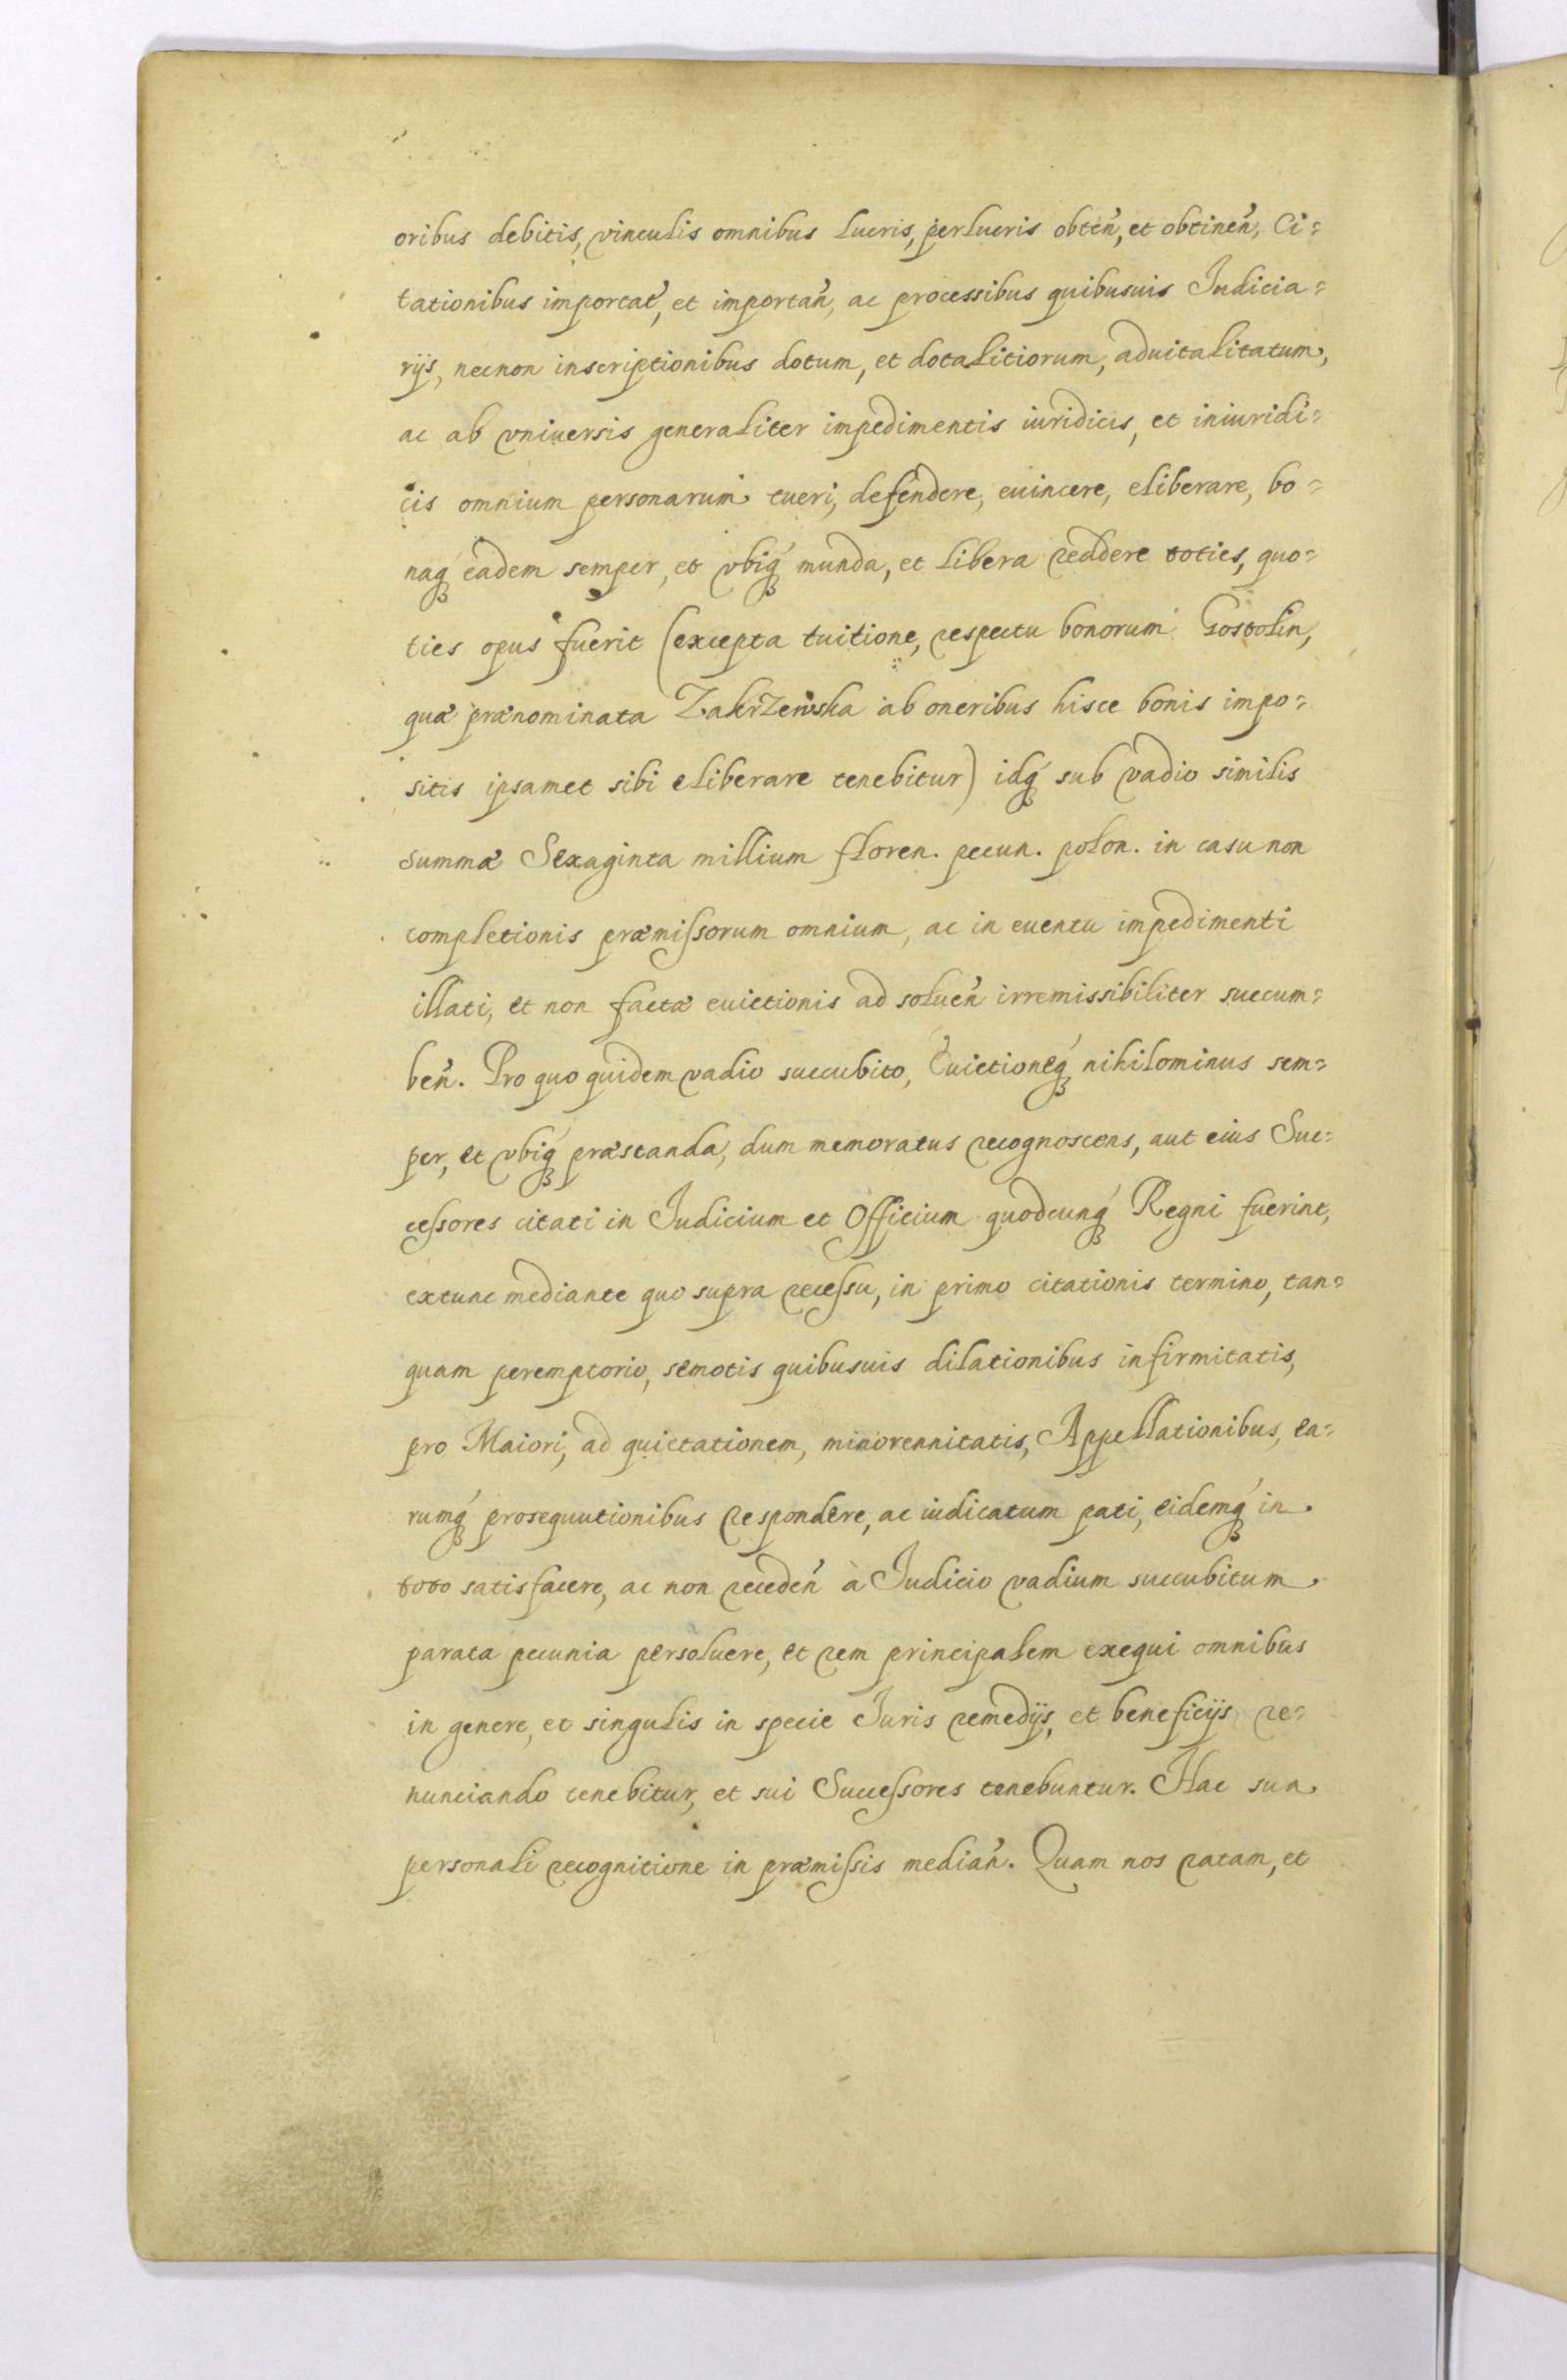 oribus debitis, vinculis omnibus lucris, perlucris obteñ, et obtineñ, Ci=
tationibus importat̃, et importañ, ac processibus quibusuis Iudicia=
rijs, necnon inscriptionibus dotum, et dotalitiorum, aduitalitatum,
ac ab vniuersis generaliter impedimentis iuridicis, et iniuridi=
cis omnium personarum tueri, defendere, euincere, eliberare, bo=
naq́ꝫ eadem semper, et vbiq́ꝫ munda, et libera reddere toties, quo=
ties opus fuerit (excepta tuitione, respectu bonorum Gostolin,
quæ prænominata Zakrzewska ab oneribus hisce bonis impo=
sitis ipsamet sibi eliberare tenebitur) idq́ꝫ sub vadio similis
summæ Sexaginta millium floren. pecun. polon. in casu non
completionis præmissorum omnium, ac in euentu impedimenti
illati, et non factæ euictionis ad solueñ irremissibiliter succum=
beñ. Pro quo quidem vadio succubito, Euictioneq́ꝫ nihilominus sem=
per, et vbiq́ꝫ præstanda, dum memoratus recognoscens, aut eius Suc=
cessores citati in Iudicium et Officium quodcunq́ꝫ Regni fuerint,
extunc mediante quo supra recessu, in primo citationis termino, tan=
quam peremptorio, semotis quibusuis dilationibus infirmitatis,
pro Maiori, ad quietationem, minorennitatis, Appellationibus, ea=
rumq́ꝫ prosequutionibus respondere, ac iudicatum pati, eidemq́ꝫ in
toto satisfacere, ac non recedeñ à Iudicio vadium succubitum
parata pecunia persoluere, et rem principalem exequi omnibus
in genere, et singulis in specie Iuris remedijs, et beneficijs re=
nunciando tenebitur, et sui Successores tenebuntur. Hac sua
personali recognitione in præmissis mediañ. Quam nos ratam, et